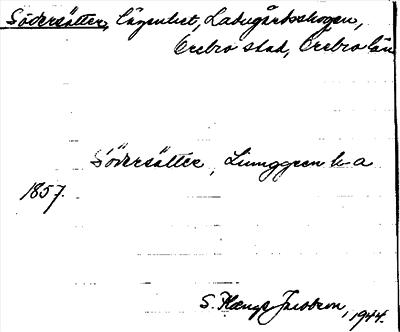 Södersätter, lägenhet, Ladugårdsskogen,
Örebro stad, Örebro län
Södersätter, Ljunggren h a
1857.
S. Jacobson, 1944.